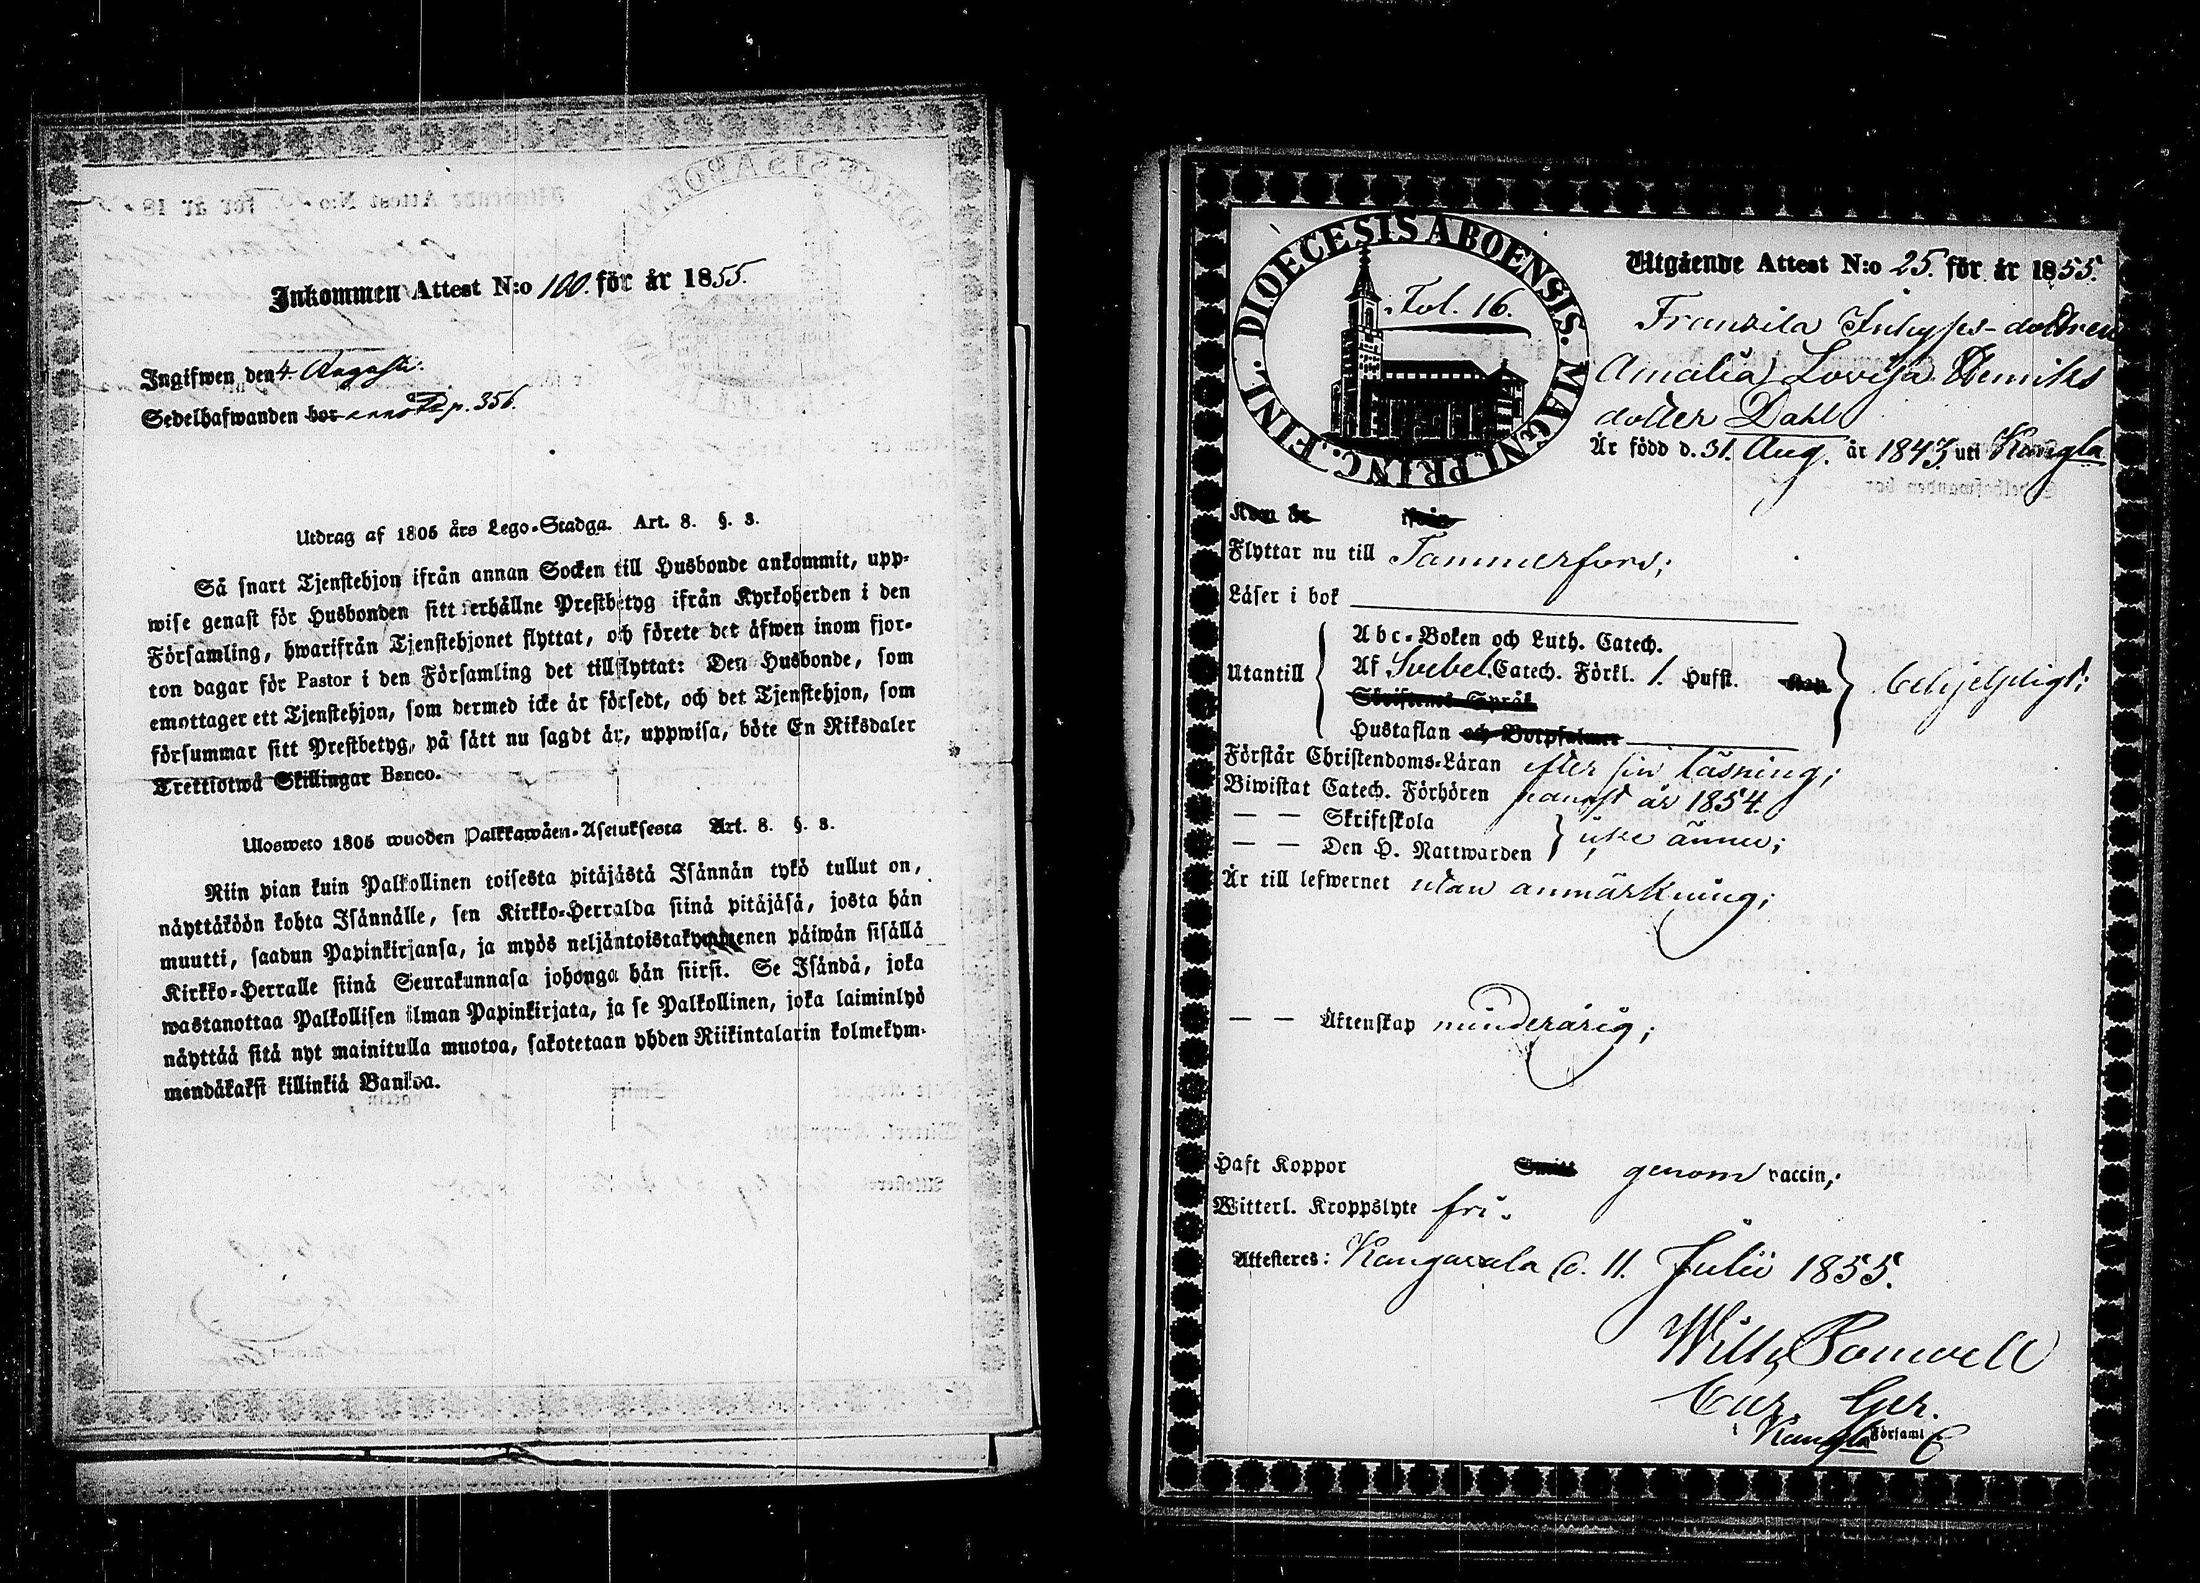 Inkommen Attest N:o 100. för år 1855.
Ingifwen den 4. Augusti.
Sedelhafwanden bor p. 356.
Utdrag af 1805 års Lego-Stadga. Art. 8. §. 3.
Så snart Tjenstehjon ifrån annan Socken till Husbonde ankommit, upp-
wise genast för Husbonden sitt erhållne Prestbetyg ifrån Kyrkoherden i den
Församling, hwarifrån Tjenstehjonet flyttat, och förete det äfwen inom fjor-
ton dagar för Pastor i den Församling det tillflyttat: Den Husbonde, som
emottager ett Tjenstehjon, som dermed icke är försedt, och det Tjenstehjon, som
försummar sitt Prestbetyg, på sätt nu sagdt är, uppwisa, böte En Riksdaler
Trettiotwå Skillingar Banco.
Ulosweto 1805 wuoden Palkkawäen-Asetuksesta Art. 8. §. 3.
Niin pian kuin Palkollinen toisesta pitäjästä Isännän tykö tullut on,
näyttäköön kohta Isännälle, sen Kirkko-Herralda siinä pitäjäsä, josta hän
muutti, saadun Papinkirjansa, ja myös neljäntoistakymmenen päiwän sisällä
Kirkko-Herralle siinä Seurakunnasa johonga hän siirsi. Se Isändä, joka
wastanottaa Palkollisen ilman Papinkirjata, ja se Palkollinen, joka laiminlyö
näyttää sitä nyt mainitulla muotoa, sakotetaan yhden Riikintalarin kolmekym-
mendäkaksi killinkiä Bankoa.
DIOECESIS ABOENSIS. MAGNI PRINC. FINL.
Fol. 16.
Utgående Attest N:o 25. för år 1855.
Franzila Inhyses-dottren
Amalia Lovisa Henriks
dotter Dahl
Är född d. 31. Aug. år 1843. uti Kangla
Kom år ifrån
Flyttar nu till Tammerfors;
Läser i bok
Abc-Boken och Luth. Catech.
Utantill Af Svebel. Catech. Förkl. 1. Hufst. Kap. behjelpligt;
Skriftenes Språk
Hustaflan och Botpsalmer
Förstår Christendoms-Läran efter sin läsning;
Biwistat Catech. Förhören senast år 1854.
— — Skriftskola
— — Den H. Nattwarden icke ännu;
Är till lefwernet utan anmärkning;
— — Äktenskap minderårig;
Haft Koppor Smitt genom vaccin;
Witterl. Kroppslyte fri.
Attesteres: Kangasala d. 11. Julii 1855.
Will
i Kangla Församl.